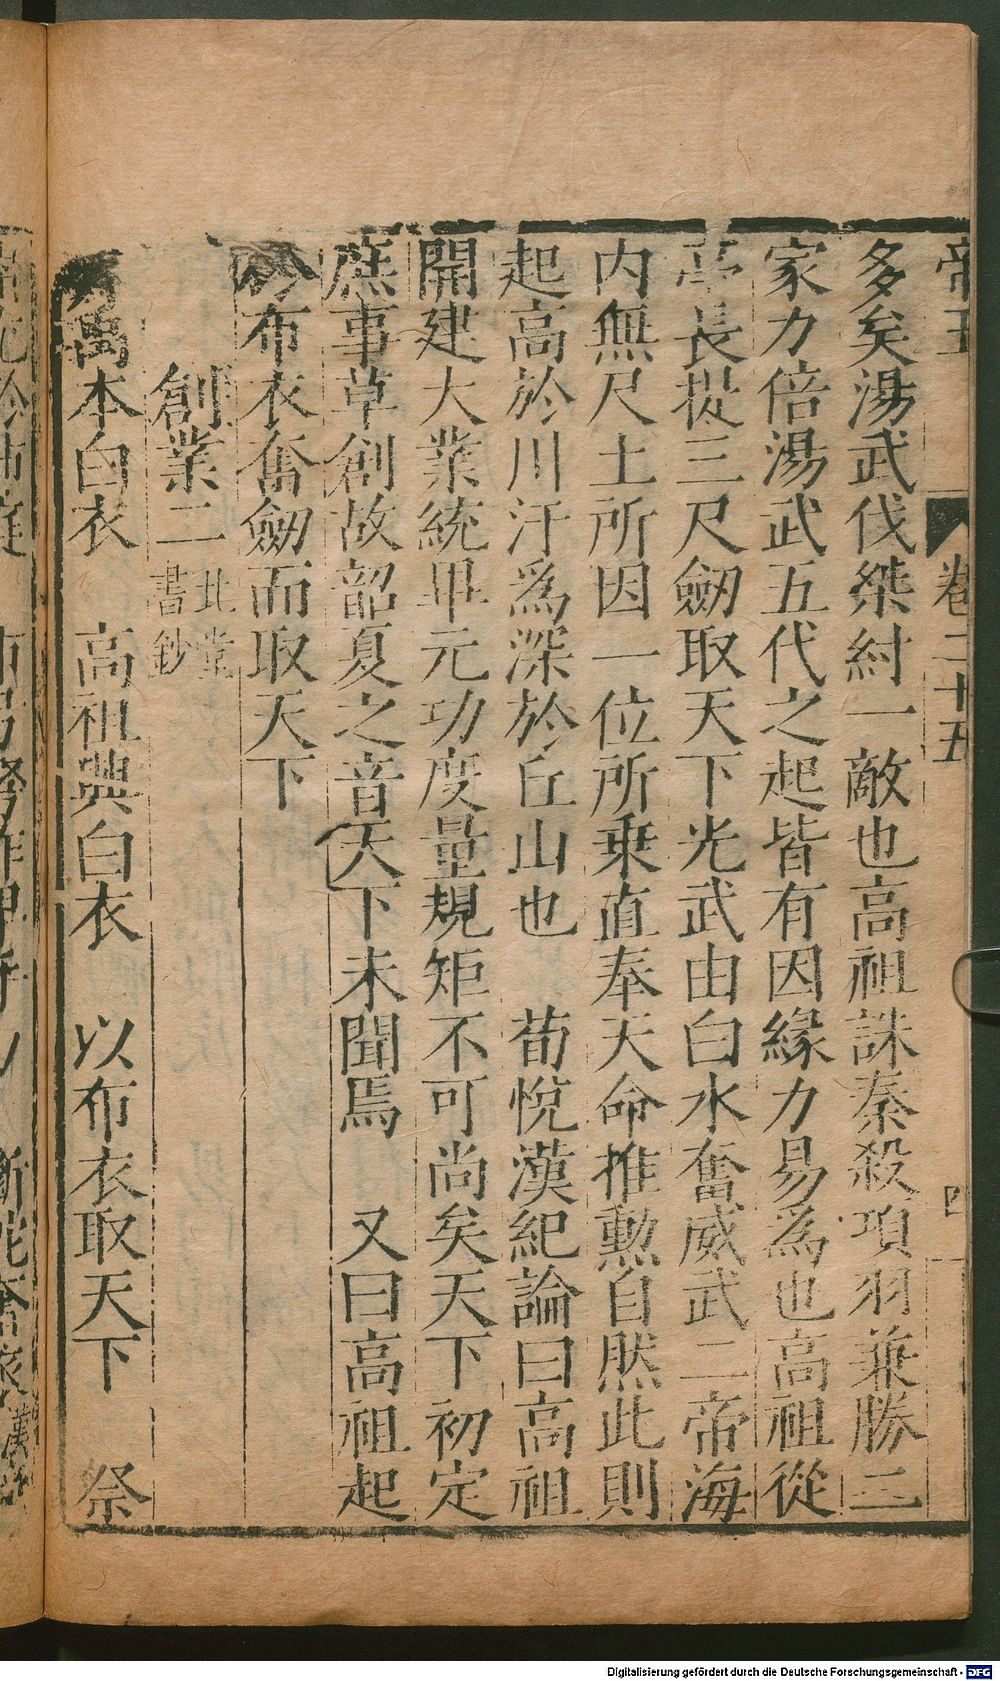 帝王 卷二十五 四
多矣湯武伐桀紂一敵也高祖誅秦殺項羽兼勝二
家力倍湯武五代之起皆有因緣力易為也高祖從
亭長提三尺劒取天下光武由白水奮威武二帝海
内無尺土所因一位所乗直奉天命推勲自然此則
起高於川汙為深於丘山也 荀悅漢紀論曰高祖
開建大業統畢元功度量規矩不可尚矣天下初定
庶事草創故韶夏之音天下未聞焉 又曰高祖起
布衣奮劒而取天下
創業二 北堂書鈔
禹本白衣 高祖興白衣 以布衣取天下 祭
Digitalisierung gefördert durch die Deutsche Forschungsgemeinschaft - DFG